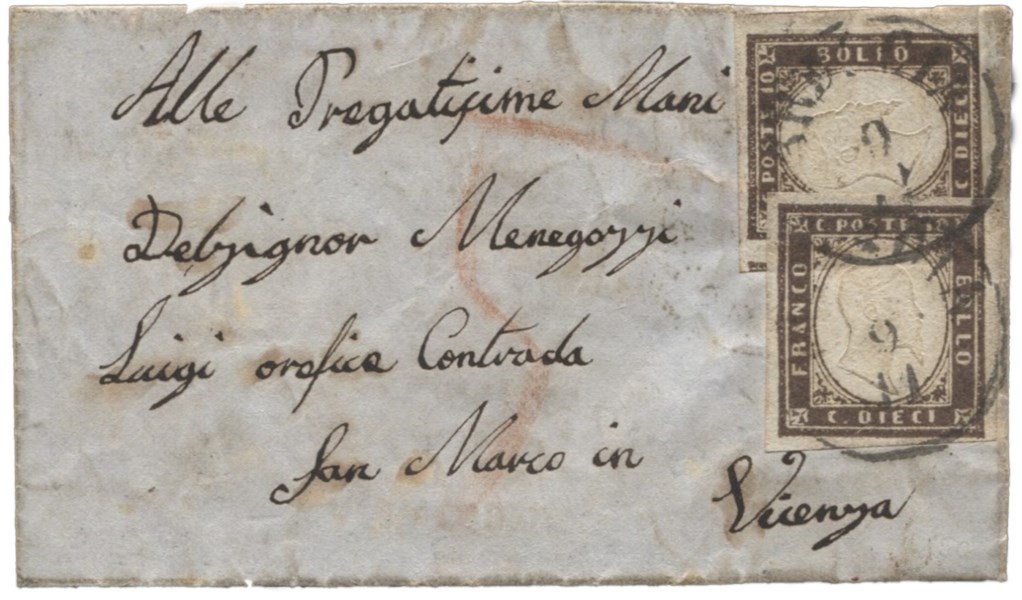 Alle Pregatissime Mani
Del Signor Menegozzi
Luigi orefice Contrada
San Marco in
Vicenza
BOLLO
POSTE 10
C. DIECI
C. POSTE 10
FRANCO
BOLLO
C. DIECI
9
9
11